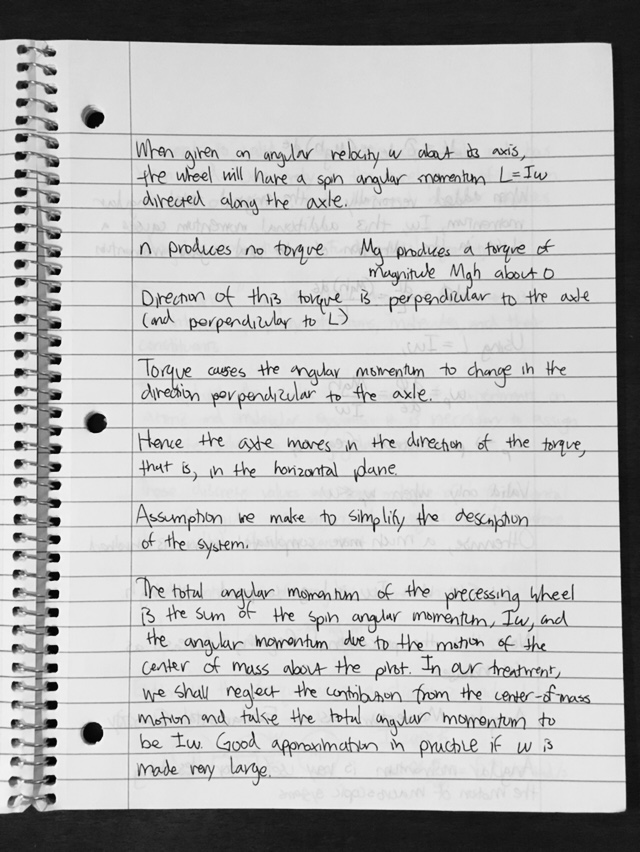 When given an angular velocity w about its axis,
the wheel will have a spin angular momentum L=Iw
directed along the axle.
n produces no torque Mg produces a torque of
magnitude Mgh about O
Direction of this torque is perpendicular to the axle
(and perpendicular to L)
Torque causes the angular momentum to change in the
direction perpendicular to the axle.
Hence the axle moves in the direction of the torque,
that is, in the horizontal plane.
Assumption we make to simplify the description
of the system.
The total angular momentum of the precessing wheel
is the sum of the spin angular momentum, Iw, and
the angular momentum due to the motion of the
center of mass about the pivot. In our treatment,
we shall neglect the contribution from the center-of-mass
motion and take the total angular momentum to
be Iw. Good approximation in practice if w is
made very large.